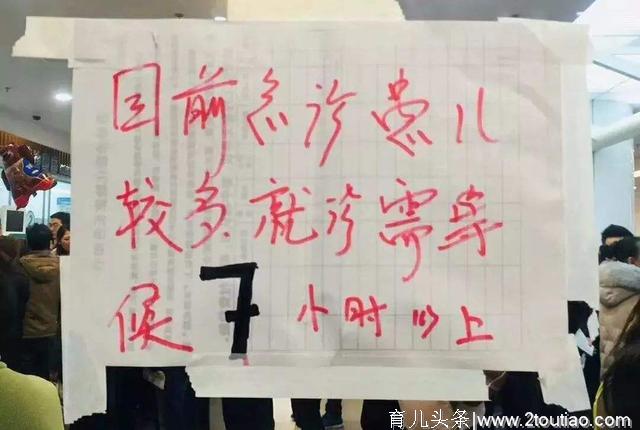 目前急诊患儿
较多就诊需等
候7小时以上
育儿头条 www.2toutiao.com